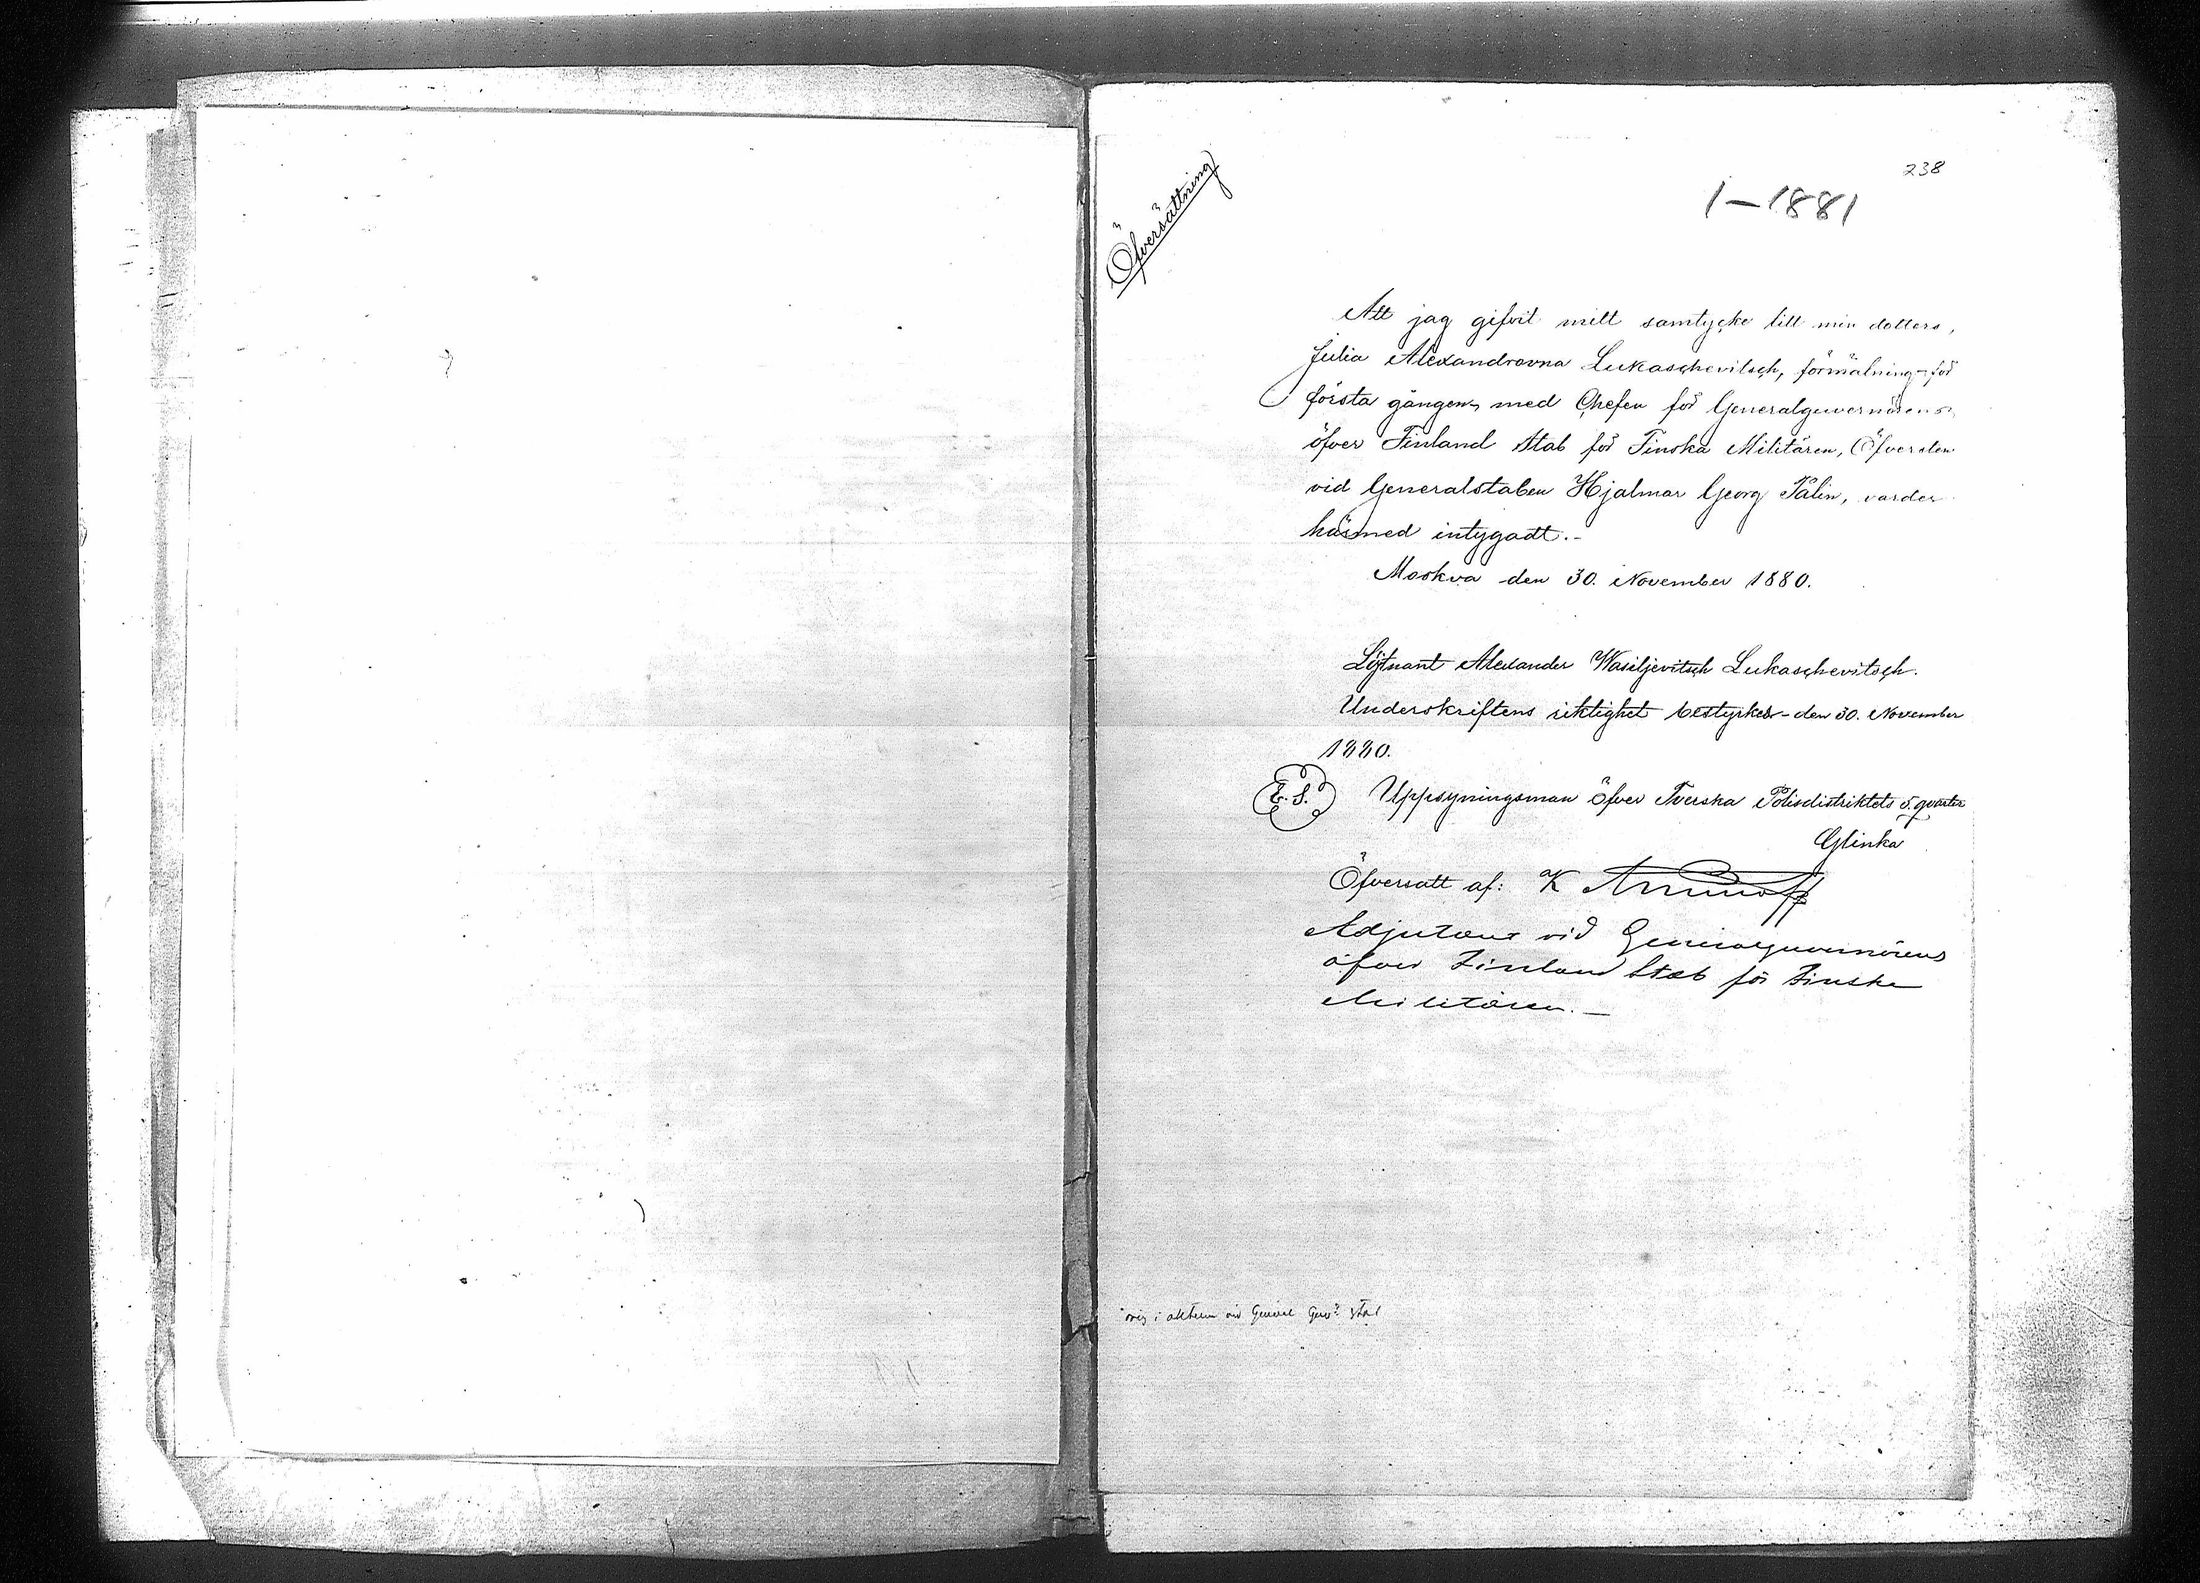 238
1-1881
Öfversättning
Att jag gifvit mitt samtycke till min dotters,
Julia Alexandrovna Lukaschevitsch, förmälning för
första gången, med Chefen för Generalguvernörens
öfver Finland Stab för Finska Militären, Öfversten
vid Generalstaben Hjalmar Georg Pålin, varder
härmed intygadt.-
Moskva den 30. November 1880.
Löjtnant Alexander Wasiljevitsch Lukaschevitsch.
Underskriftens riktighet bestyrkes - den 30. November
1880.
L.S. Uppsyningsman öfver Tverska Polisdistriktets 5. qvarter
Glinka
Öfversatt af: K Aminoff
Adjutant vid Generalguvernörens
öfver Finland Stab för Finska
Militären. —
orig i akterna vid General Guvs stab